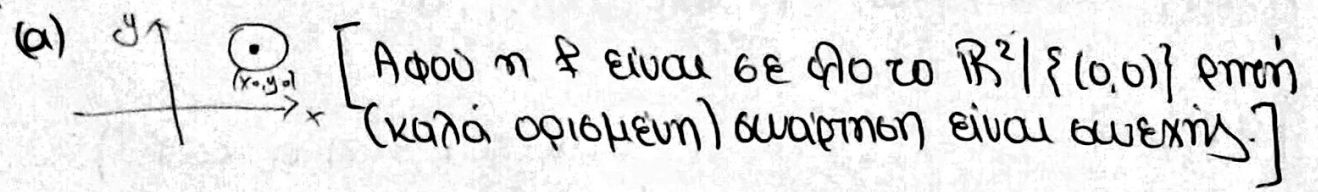 (a) y (x₀,y₀) x [Αφού η f είναι σε όλο το ℝ²\{(0,0)} ρητή
(καλά ορισμένη) συνάρτηση είναι συνεχής.]